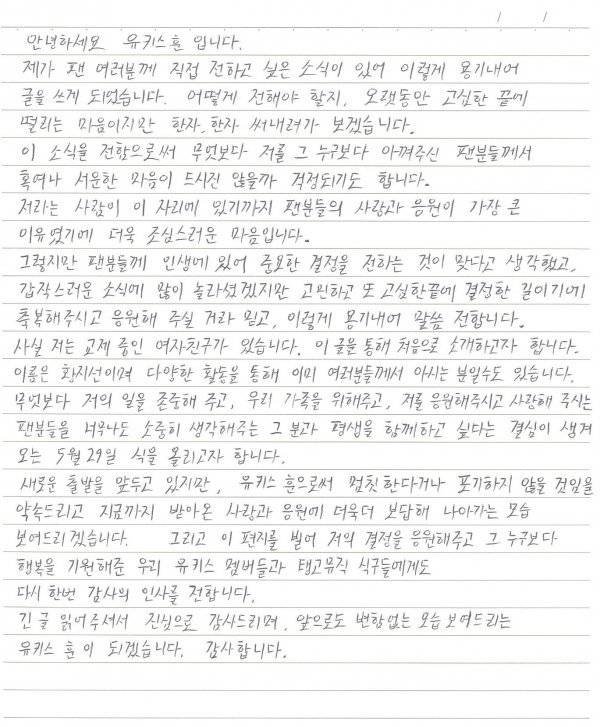 / /
안녕하세요 유키스 훈 입니다.
제가 팬 여러분께 직접 전하고 싶은 소식이 있어 이렇게 용기내어
글을 쓰게 되었습니다. 어떻게 전해야 할지, 오랫동안 고심한 끝에
떨리는 마음이지만 한자, 한자 써내려가 보겠습니다.
이 소식을 전함으로써 무엇보다 저를 그 누구보다 아껴주신 팬분들께서
혹여나 서운한 마음이 드시진 않을까 걱정되기도 합니다.
저라는 사람이 이 자리에 있기까지 팬분들의 사랑과 응원이 가장 큰
이유였기에 더욱 조심스러운 마음입니다.
그렇지만 팬분들께 인생에 있어 중요한 결정을 전하는 것이 맞다고 생각했고,
갑작스러운 소식에 많이 놀라셨겠지만 고민하고 또 고심한끝에 결정한 길이기에
축복해주시고 응원해 주실 거라 믿고, 이렇게 용기내어 말씀 전합니다.
사실 저는 교제 중인 여자친구가 있습니다. 이 글을 통해 처음으로 소개하고자 합니다.
이름은 황지선이며 다양한 활동을 통해 이미 여러분들께서 아시는 분일수도 있습니다.
무엇보다 저의 일을 존중해 주고, 우리 가족을 위해주고, 저를 응원해주시고 사랑해 주시는
팬분들을 너무나도 소중히 생각해주는 그 분과 평생을 함께하고 싶다는 결심이 생겨
오는 5월 29일 식을 올리고자 합니다.
새로운 출발을 앞두고 있지만, 유키스 훈으로써 멈칫한다거나 포기하지 않을 것임을
약속드리고 지금까지 받아온 사랑과 응원에 더욱더 보답해 나아가는 모습
보여드리겠습니다. 그리고 이 편지를 빌어 저의 결정을 응원해주고 그 누구보다
행복을 기원해준 우리 유키스 멤버들과 탱고뮤직 식구들에게도
다시 한번 감사의 인사를 전합니다.
긴 글 읽어주셔서 진심으로 감사드리며, 앞으로도 변함없는 모습 보여드리는
유키스 훈 이 되겠습니다. 감사합니다.